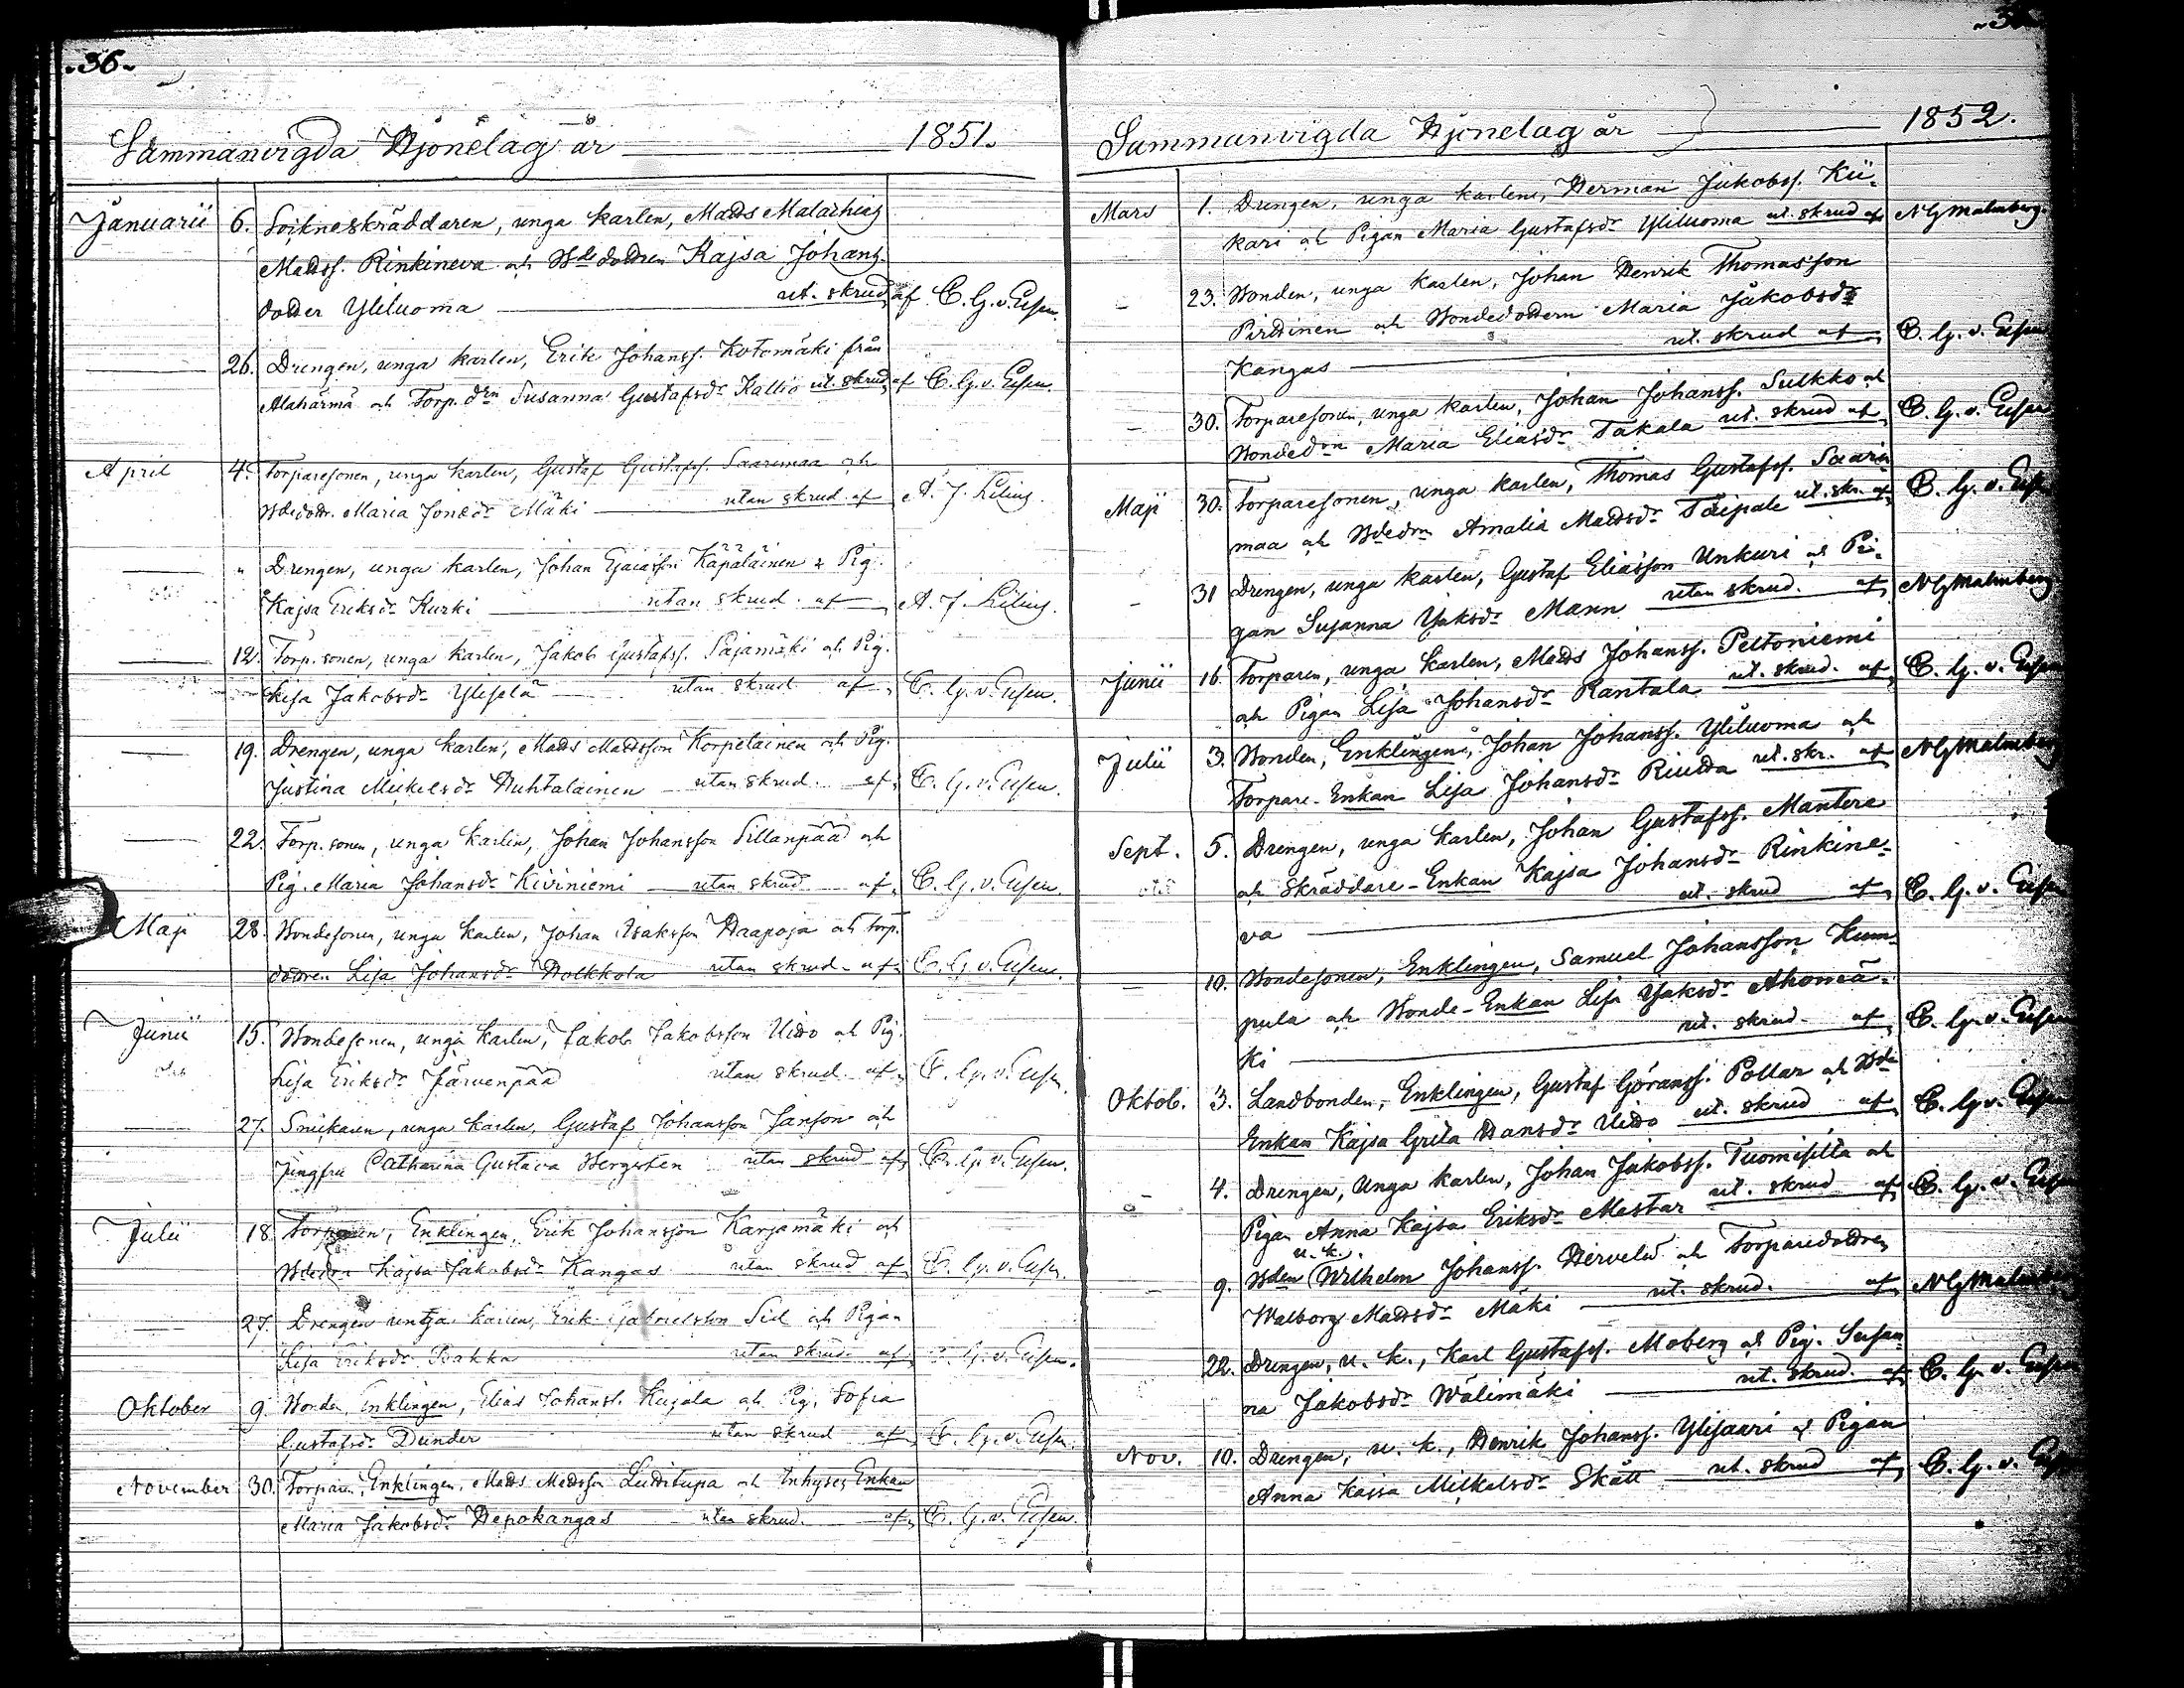 36
Sammanvigda Hjonelag år 1851.
Januarii 6. Sockneskräddaren, unga karlen, Matts Malachias
Mattss. Rinkineva och Bdedottren Kajsa Johans
dotter Yliluoma ut. skrud af C. G. v. Essen.
26. Drengen, unga karlen, Erik Johanss. Kotomäki från
Alahärmä och Torp. drn Susanna Gustafsdr Kallio ut. skrud af C. G. v. Essen.
April 4. Torparesonen, unga karlen, Gustaf Gustafss. Saarimaa och
Bdedotr. Maria Jonædr Mäki utan skrud af A. J. Lilius.
" Drengen, unga karlen, Johan Esaiasson Käpäläinen & Pig.
Kajsa Eriksdr Kurki utan skrud af A. J. Lilius.
12. Torp. sonen, unga karlen, Jakob Gustafss. Pajamäki och Pig.
Lisa Jakobsdr Yliselä utan skrud af C. G. v. Essen.
19. Drengen, unga karlen, Matts Mattsson Korpelainen och Pig.
Justina Mickelsdr Huhtalainen utan skrud af C. G. v. Essen.
22. Torp. sonen, unga karlen, Johan Johansson Sillanpää och
Pig. Maria Johansdr Kiviniemi utan skrud af C. G. v. Essen.
Maji 28. Bondesonen, unga karlen, Johan Isaksson Haapoja och Torp.
dottren Lisa Johansdr Holkkola utan skrud af C. G. v. Essen.
Junii 15. Bondesonen, unga karlen, Jakob Jakobsson Uitto och Pig.
Lisa Eriksdr Järvenpää utan skrud af C. G. v. Essen.
27. Snickaren, unga karlen, Gustaf Johansson Janson och
Jungfru Catharina Gustava Bergsten utan skrud af C. G. v. Essen.
Julii 18 Torparen, Enklingen, Erik Johansson Karjamäki och
Bdedrn Kajsa Jakobsdr Kangas utan skrud af C. G. v. Essen.
27. Drengen unga karlen, Erik Gabrielsson Sid och Pigan
Lisa Eriksdr utan skrud af C. G. v. Essen.
Oktober 9. Bonden, Enklingen, Elias Johanss. Kujala och Pig. Sofia
Gustafsdr Dunder utan skrud af C. G. v. Essen.
November 30. Torparen, Enklingen, Matts Mattsson Luditupa och Inhyses Enkan
Maria Jakobsdr Hepokangas utan skrud af C. G. v. Essen.
Sammanvigda Hjonelag år 1852.
Mars 1. Drengen, unga karlen, Herman Jakobss. Kii-
kari och Pigan Maria Gustafsdr Yliluoma ut. skrud af N G Malmberg.
23. Bonden, unga karlen, Johan Henrik Thomasson
Pirttinen och Bondedottern Maria Jakobsdr
Kangas ut. skrud af C. G. v. Essen
30. Torparesonen, unga karlen, Johan Johanss. Sulkko och
Bondedrn Maria Eliasdr Takala ut. skrud af C. G. v. Essen
Maji 30. Torparesonen, unga karlen, Thomas Gustafss. Saari-
maa och Bdedrn Amalia Mattsdr Taipale ut. skr. af C. G. v. Essen
31 Drengen, unga karlen, Gustaf Eliasson Unkuri och Pi-
gan Susanna Isaksdr Mann utan skrud. af N G Malmberg
Junii 16. Torparen, unga karlen, Matts Johanss. Peltoniemi
och Pigan Lisa Johansdr Rantala ut. skrud. af C. G. v. Essen
Julii 3. Bonden, Enklingen, Johan Johanss. Yliluoma och
Torpare-Enkan Lisa Johansdr Riutta ut. skr. af N G Malmberg
Sept. 5. Drengen, unga karlen, Johan Gustafss. Mantere
och Skräddare-Enkan Kajsa Johansdr Rinkine-
va ut. skrud af C. G. v. Essen
10. Bondesonen, Enklingen, Samuel Johansson Kum-
pula och Bonde-Enkan Lisa Isaksdr Ahomä-
ki ut. skrud. af C. G. v. Essen
Oktob. 3. Landbonden, Enklingen, Gustaf Göranss. Pollar och Bde
Enkan Kajsa Greta Hansdr Uitto ut. skrud af C. G. v. Essen
4. Drengen, Unga karlen, Johan Jakobss. Tuomisilta och
Pigan Anna Kajsa Eriksdr Mestar ut. skrud af C. G. v. Essen
u. k.
9. Bden Wilhelm Johanss. Hervelä och Torparedottren
Walborg Mattsdr Mäki ut. skrud. af N G Malmberg
22. Drengen, u. k., Karl Gustafss. Moberg och Pig. Susan-
na Jakobsdr Wälimäki ut. skrud. af C. G. v. Essen
Nov. 10. Drengen, u. k., Henrik Johanss. Ylisaari & Pigan
Anna Kajsa Mickelsdr Skått ut. skrud af C. G. v. Essen